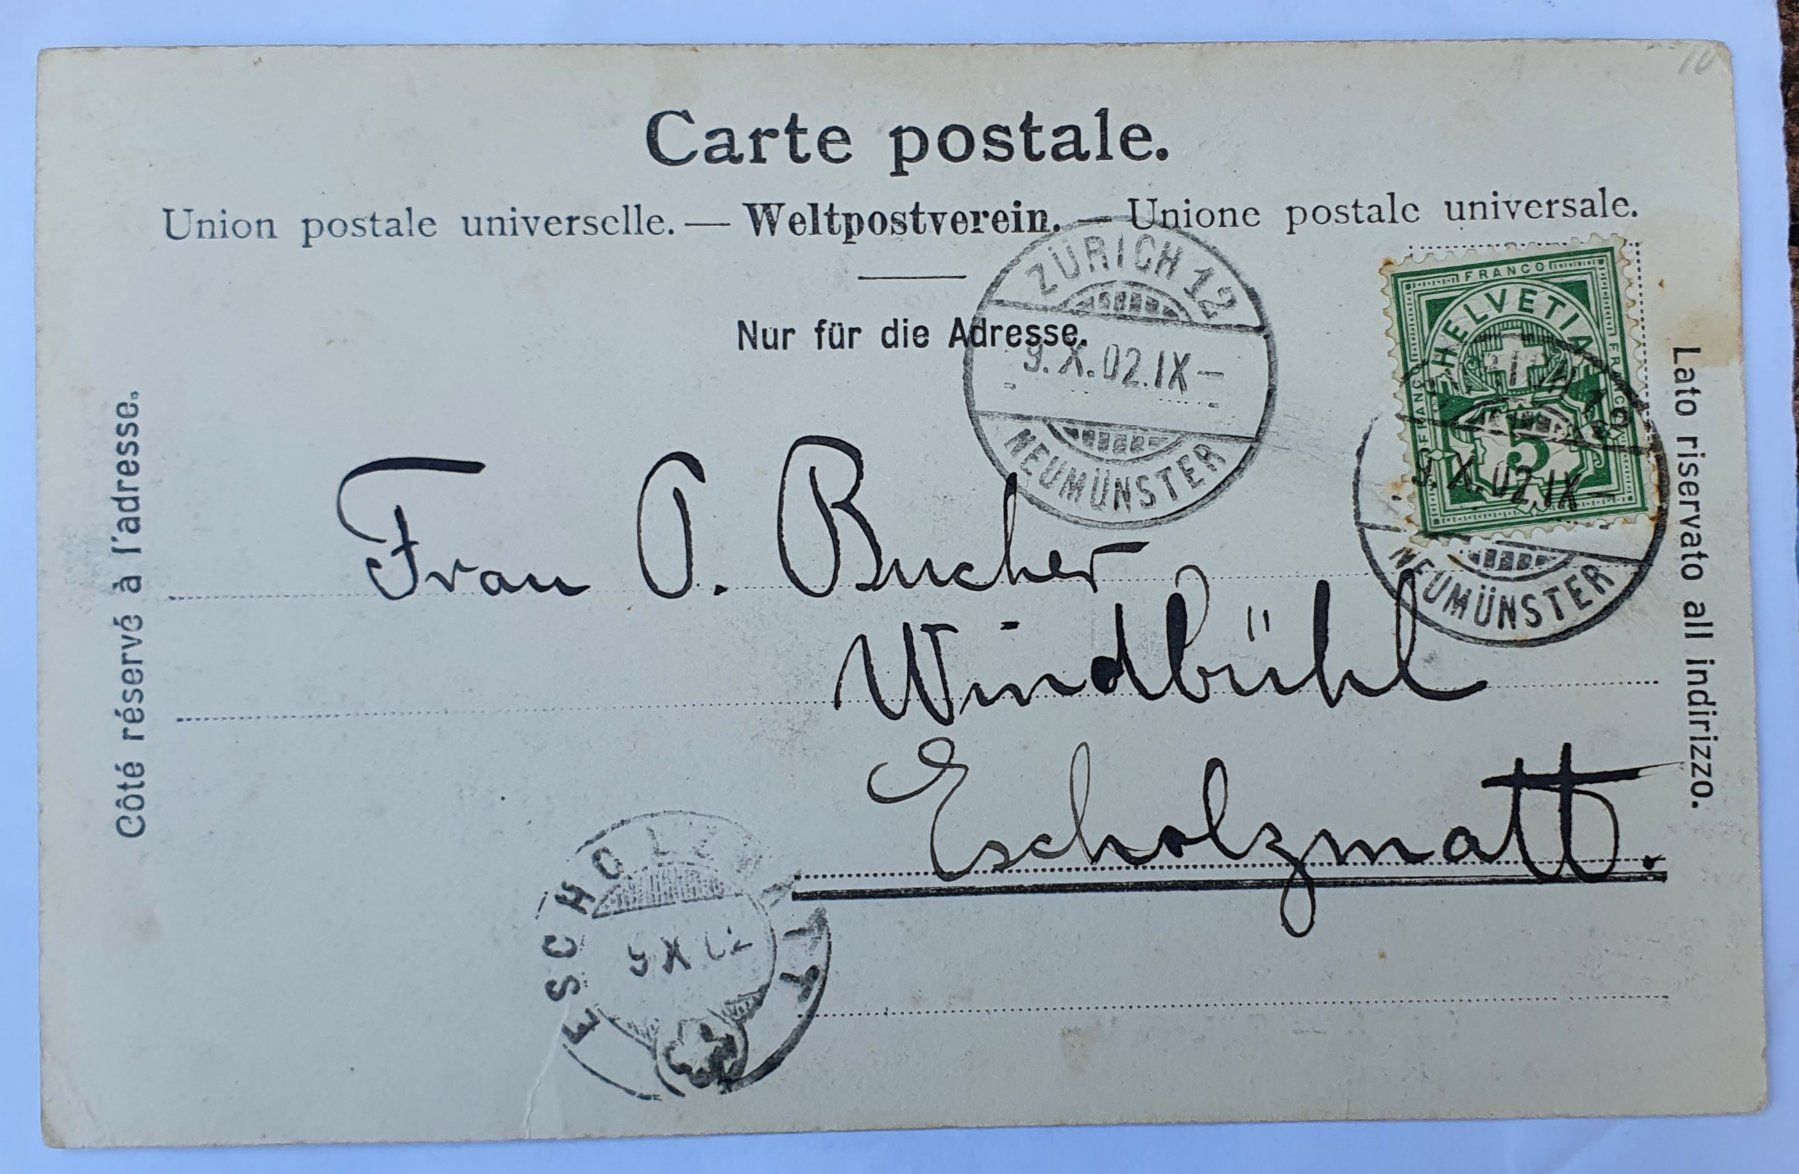 10
Carte postale.
Union postale universelle. — Weltpostverein. — Unione postale universale.
Nur für die Adresse.
Côté réservé à l'adresse.
Lato riservato all indirizzo.
ZÜRICH 12
9. X. 02. IX –
NEUMÜNSTER
FRANCO
HELVETIA
FRANCO
FRANCO
5
12
9. X. 02. IX –
NEUMÜNSTER
Frau P. Bucher
Windbühl
Escholzmatt.
ESCHOLZMATT
9 X 02